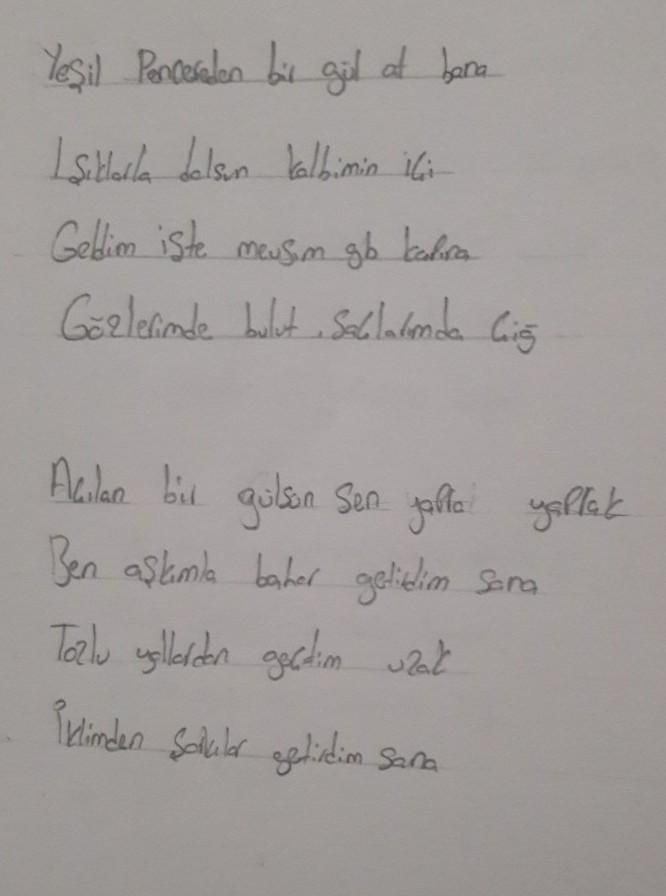 Yeşil Pencereden bir gül at bana
Işıklarla dolsun kalbimin içi
Geldim işte mevsim gb kapına
Gözlerimde bulut, saçlarımda çiğ
Açılan bir gülsün sen yaprak yaprak
Ben aşkımla bahar getirdim sana
Tozlu yollardan geçtim uzak
İklimden şarkılar getirdim sana